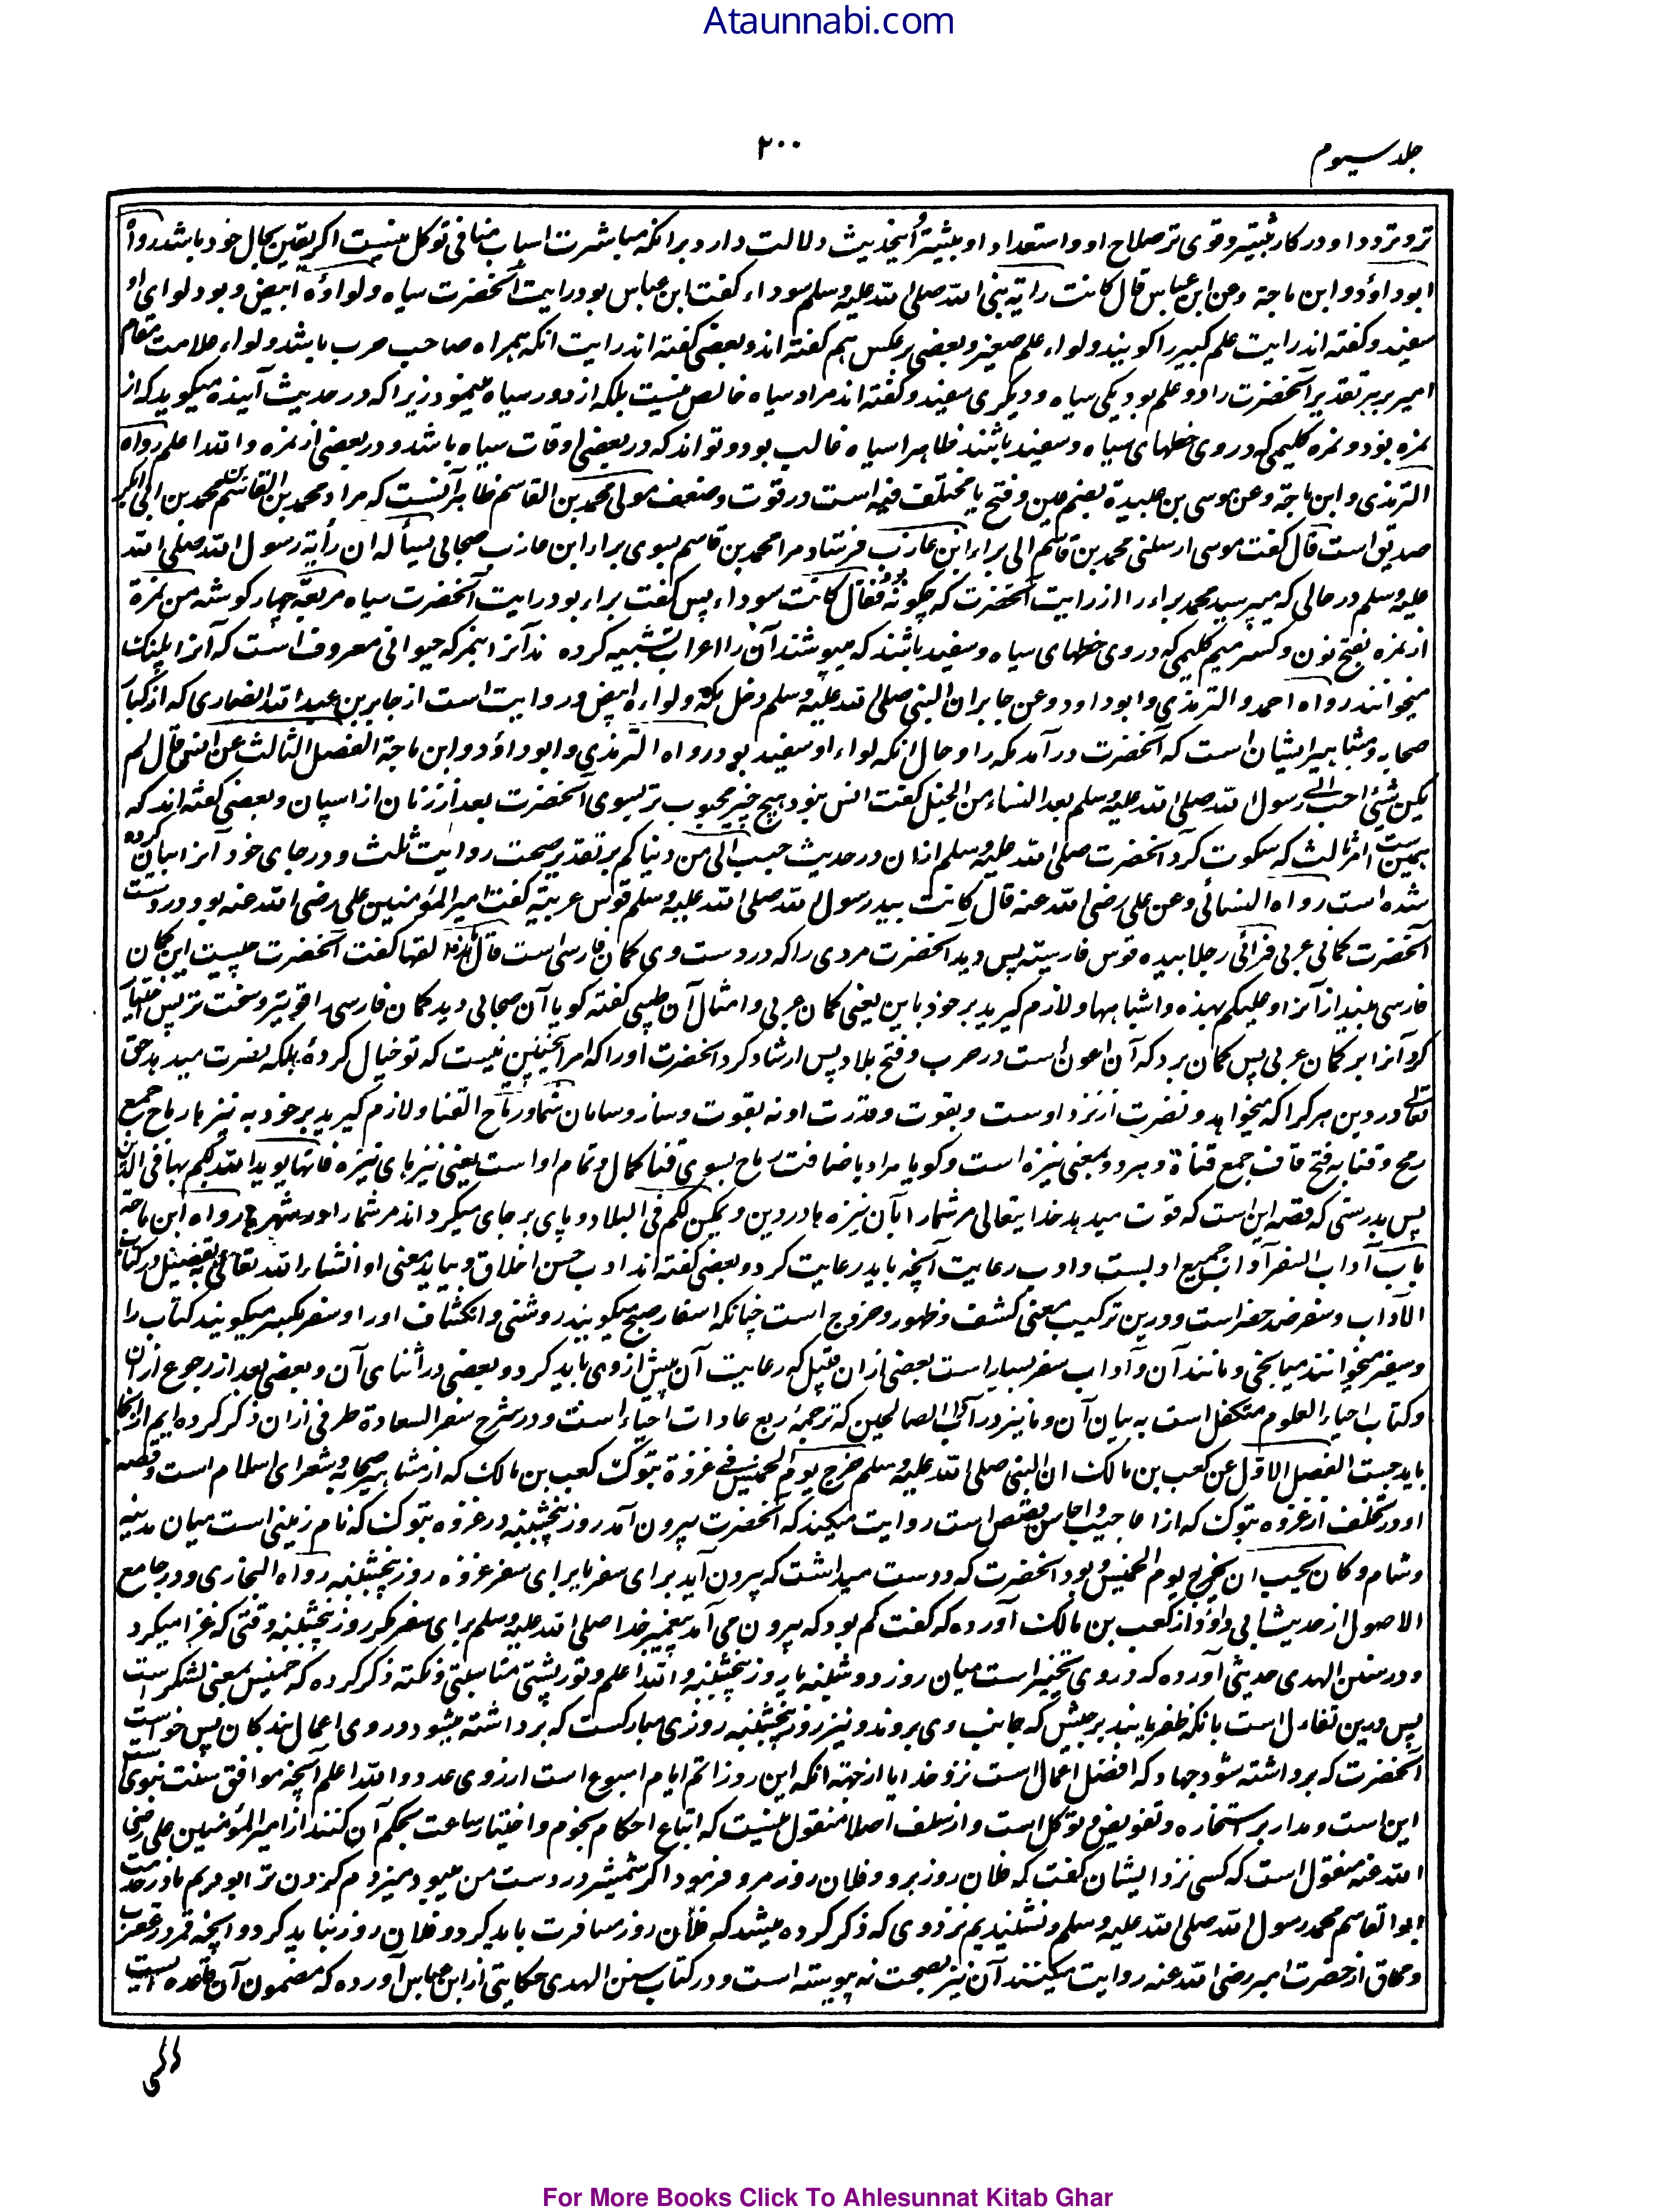 Ataunnabi.com
جلد سیوم
۲۰۰
تر و تردد او در کار بیشتر و قوی تر صلاح او و استعداد او بیشتر این حدیث دلالت دارد برانکه مباشرت اسباب منافی توکل نیست اگر یقین بحال خود باشد رواه
ابو داؤد و ابن ماجة وعن ابن عباس قال کانت رایة نبی الله صلی الله علیه وسلم سوداء کفت ابن عباس بود رایت آنحضرت سیاه ولواؤه ابیض و بود لوای او
سفید و کفته اند رایت علم کبیر را کویند و لواء علم صغیر و بعضی بر عکس هم کفته اند و بعضی کفته اند رایت انکه همراه صاحب حرب باشد و لواء علامت مقام
امیر بر هر تقدیر آنحضرت را دو علم بود یکی سیاه و دیکری سفید و کفته اند مراد سیاه خالص نیست بلکه از دور سیاه مینمود زیرا که در حدیث آینده میکوید که از
نمره بود و نمره کلیمی که در وی خطهای سیاه و سفید باشند ظاهرا سیاه غالب بود و تواند که در بعضی اوقات سیاه باشد و در بعضی از نمره والله اعلم رواه
الترمذی و ابن ماجة وعن موسی بن عبیدة بضم عین و فتح با مختلف فیه است در قوت و ضعف مولی محمد بن القاسم ظاهر آنست که مراد محمد بن القاسم بن محمد بن ابی بکر
صدیق است قال کفت موسی ارسلنی محمد بن قاسم الی براء ابن عازب فرستاد مرا محمد بن قاسم بسوی براء ابن عازب صحابی یسأله ان رأیة رسول الله صلی الله
علیه وسلم در حالی که میپرسید محمد براء را از رایت آنحضرت که چکونه بود فقال کانت سوداء پس کفت براء بود رایت آنحضرت سیاه مربعة چهار کوشه من نمرة
از نمره بفتح نون و کسر میم کلیمی که در وی خطهای سیاه و سفید باشند که میپوشند آن را اعراب تشبیه کرده ند آنرا بنمر که حیوانی معروف است که آنرا پلنک
میخوانند رواه احمد والترمذی وابو داود وعن جابر ان النبی صلی الله علیه وسلم دخل مکة ولواءه ابیض و روایت است از جابر بن عبدالله انصاری که از کبار
صحابه و مشاهیر ایشان است که آنحضرت در آمد مکه را و حال انکه لواء او سفید بود رواه الترمذی وابو داؤد وابن ماجة الفصل الثالث عن انس قال لم
یکن شیئ احب الی رسول الله صلی الله علیه وسلم بعد النساء من الخیل کفت انس نبود هیچ چیز محبوب تر بسوی آنحضرت بعد از زنان از اسپان و بعضی کفته اند که
همین ست امر ثالث که سکوت کرد آنحضرت صلی الله علیه وسلم ازان در حدیث حبب الی من دنیاکم بر تقدیر صحت روایت ثلث و در جای خود آنرا بیان کرده
شده است رواه النسائی وعن علی رضی الله عنه قال کانت بید رسول الله صلی الله علیه وسلم قوس عربیة کفت امیر المؤمنین علی رضی الله عنه بود در دست
آنحضرت کمانی عربی فرائی رجلا بیده قوس فارسیة پس دید آنحضرت مردی را که در دست وی کمان فارسی است قال ما هذه القها کفت آنحضرت چیست این کمان
فارسی بینداز آنرا و علیکم بهذه واشباهها و لازم کیرید بر خود باین یعنی کمان عربی و امثال آن طیبی کفته کویا آن صحابی دید کمان فارسی را قویتر و سخت تر پس اختیار
کرد آنرا بر کمان عربی پس کمان برد که آن اعون است در حرب و فتح بلاد پس ارشاد کرد انحضرت او را که امر اینچنین نیست که تو خیال کردهٔ بلکه نصرت میدهد حق
تعالی در دین هر کرا که میخواهد و نصرت از نزد اوست و بقوت و قدرت او نه بقوت و ساز و سامان شما و رماح القنا و لازم کیرید بر خود به نیزها رماح جمع
رمح و قنا به فتح قاف جمع قناة و هر دو بمعنی نیزه است و کویا مراد باضافت رماح بسوی قنا کمال و تمام او است یعنی نیزهای نیزه فانها یوید الله لکم بها فی الدین
پس بدرستی که قصه این است که قوت میدهد خدا یتعالی مر شما را بآن نیزه ها در دین و یمکن لکم فی البلاد و پای بر جای میکرداند مر شما را در شهرها رواه ابن ماجة
باب آداب السفر آداب جمع ادبست و ادب رعایت آنچه باید رعایت کرد و بعضی کفته اند ادب حسن اخلاق و بیاید معنی او انشاء الله تعالی به تفصیل در کتاب
الآداب و سفر ضد حضر است و درین ترکیب معنی کشف و ظهور و خروج است چنانکه اسفار صبح میکویند روشنی و انکشاف او را و سفر بکسر میکویند کتاب را
و سفیر میخوانند میانجی و مانند آن و آداب سفر بسیار است بعضی ازان قبیل که رعایت آن پیش از وی باید کرد و بعضی در اثنای آن و بعضی بعد از رجوع ازان
و کتاب احیاء العلوم متکفل است به بیان آن و ما نیز در آداب الصالحین که ترجمهٔ ربع عادات احیاء است و در شرح سفر السعادة طرفی ازان ذکر کرده ایم از انجا
باید جست الفصل الاول عن کعب بن مالک ان النبی صلی الله علیه وسلم خرج یوم الخمیس فی غزوة تبوک کعب بن مالک که از مشاهیر صحابه و شعرای اسلام است و قصه
او در تخلف از غزوه تبوک که از اعاجیب و احاسن قصص است روایت میکند که آنحضرت بیرون آمد روز پنجشنبه در غزوه تبوک که نام زمینی است میان مدینه
و شام و کان یحب ان یخرج یوم الخمیس و بود انحضرت که دوست میداشت که بیرون آید برای سفر یا برای سفر غزوه روز پنجشنبه رواه البخاری و در جامع
الاصول از حدیث ابی داؤد از کعب بن مالک آورده که کفت کم بود که بیرون می آمد پیغمبر خدا صلی الله علیه وسلم برای سفر مکر روز پنجشنبه وقتی که غزا میکرد
و در سنن الهدی حدیثی آورده که در وی تخییر است میان روز دوشنبه یا روز پنجشنبه والله اعلم و تورپشتی مناسبتی و نکته ذکر کرده که خمیس بمعنی لشکر است
پس درین تفاول است بانکه ظفر یابند بر جیش که جانب وی بروند و نیز روز پنجشنبه روزی مبارکست که برداشته میشود در وی اعمال بندکان پس خواست
آنحضرت که برداشته شود جهاد که افضل اعمال است نزد خدا یا از جهة انکه این روز اتم ایام اسبوع است از روی عدد و الله اعلم آنچه موافق سنت نبوی ست
این است و مدار بر استخاره و تفویض و توکل است و از سلف اصلا منقول نیست که اتباع احکام نجوم و اختیار ساعت بحکم آن کنند از امیر المؤمنین علی رضی
الله عنه منقول است که کسی نزد ایشان کفت که فلان روز برو و فلان روز مرو فرمود اکر شمشیر در دست من میبود میزدم کردن ترا بودیم ما در خدمت
ابو القاسم محمد رسول الله صلی الله علیه وسلم و نشنیدیم نزد وی که ذکر کرده میشد که فلان روز مسافرت باید کرد و فلان روز نباید کرد و آنچه قمر در عقرب
و محاق از حضرت امیر رضی الله عنه روایت میکنند آن نیز بصحت نه پیوسته است و در کتاب سنن الهدی حکایتی از ابن عباس آورده که مضمون آن قاعده است
For More Books Click To Ahlesunnat Kitab Ghar